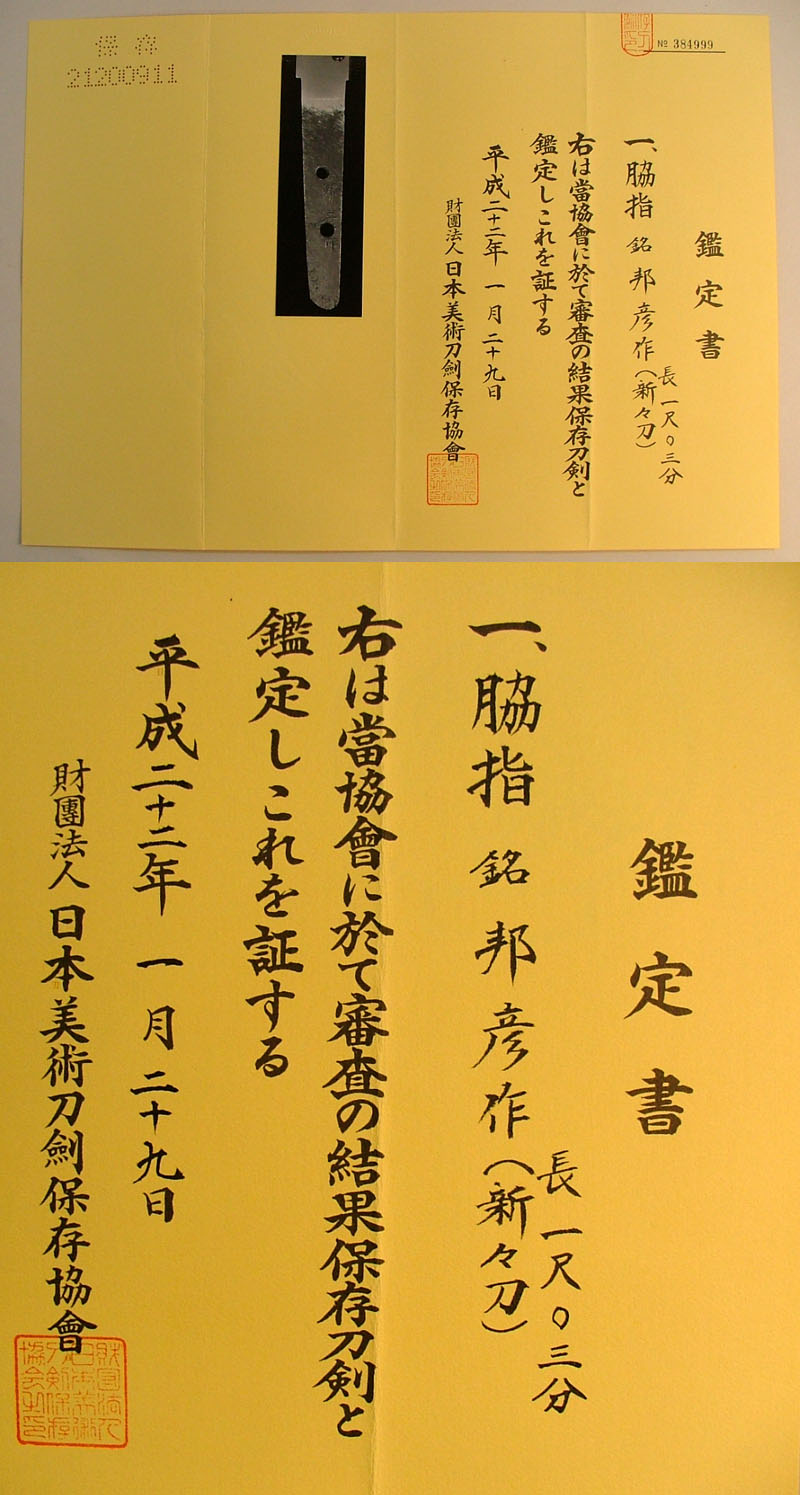 保存
21200911
№ 384999
鑑定書
一、脇指 銘 邦彦作(新々刀)
長 一尺〇三分
右は當協會に於て審査の結果保存刀剣と
鑑定しこれを証する
平成二十二年 一月 二十九日
財團法人 日本美術刀劍保存協會
鑑定書
一、脇指 銘 邦彦作(新々刀)
長 一尺〇三分
右は當協會に於て審査の結果保存刀剣と
鑑定しこれを証する
平成二十二年 一月 二十九日
財團法人 日本美術刀劍保存協會